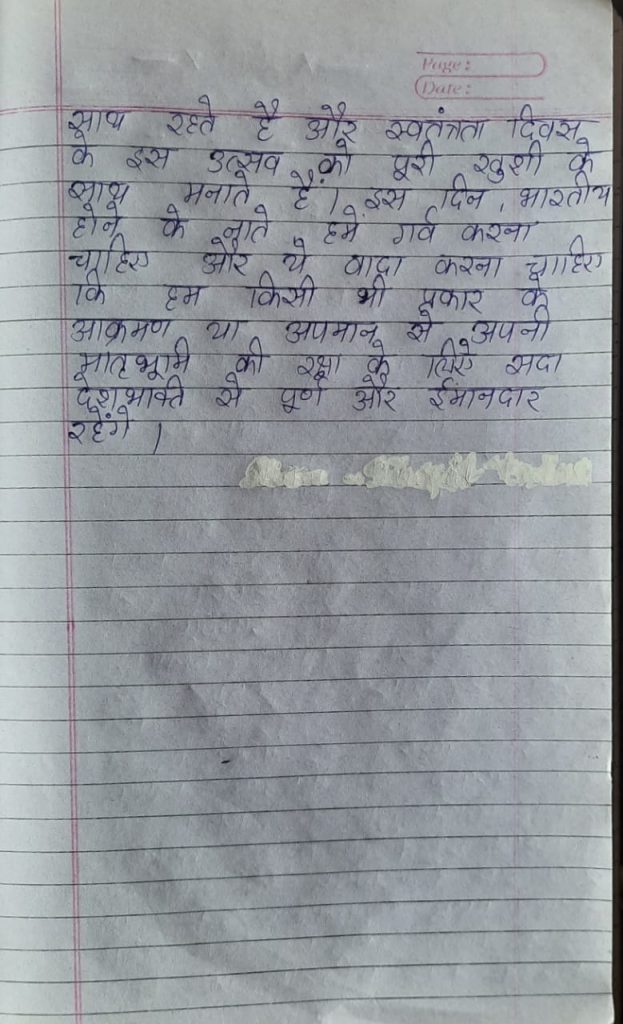 Page:
Date:
साथ रहते है और स्वतंत्रता दिवस
के इस उत्सव को पूरी खुशी के
साथ मनाते है। इस दिन, भारतीय
होने के नाते, हमे गर्व करना
चाहिए और ये वादा करना चाहिए
कि हम किसी भी प्रकार के
आक्रमण या अपमान से अपनी
मातृभूमि की रक्षा के लिए सदा
देशभक्ति से पूर्ण और ईमानदार
रहेंगे।